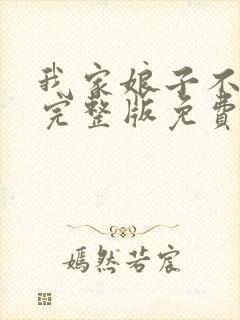 我家娘子不
完整版免费
嫣然若宸